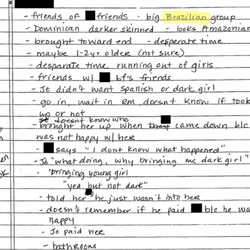 - friends of friends - big Brazilian group
- Dominican darker skinned - looks Amazonian
- brought toward end - desperate time
- maybe 1-2yr older (not sure)
- desparate time, running out of girls
- friends w/ bf's friends
- JE didn't want Spanish or dark girl
- go in, wait in Rm, doesn't know if took
up or not
doesn't know who
- brought her up when came down b/c
was not happy w/ her
- says "I dont know what happened"
- JE "what doing, why bringing me dark girl"
- "bringing young girl
"yea but not dark"
- told her he just wasn't into her
- doesn't remember if he paid b/c he was
happy
- JE paid her
- bathroom